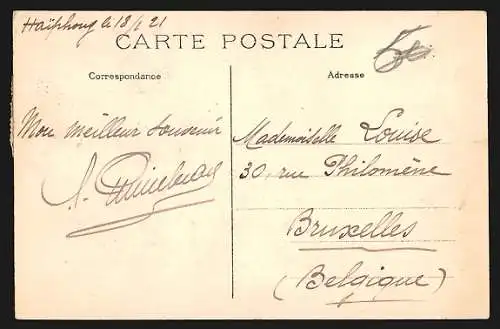 Haïphong le 18/1 21
CARTE POSTALE
Correspondance
Adresse
Mon meilleur souvenir
Mademoiselle Louise
30, rue Philomène
Bruxelles
(Belgique)